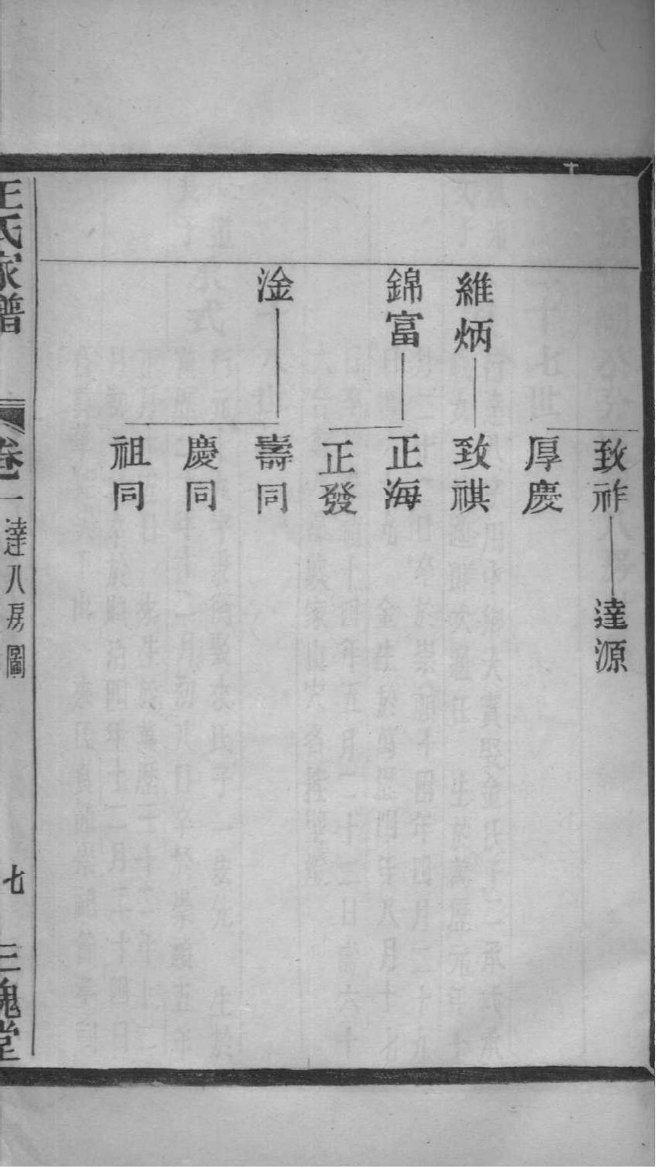 致祚
達源
厚慶
維炳
致祺
錦富
正海
正發
淦
壽同
慶同
祖同
王氏家譜
卷一達八房圖
七
三槐堂